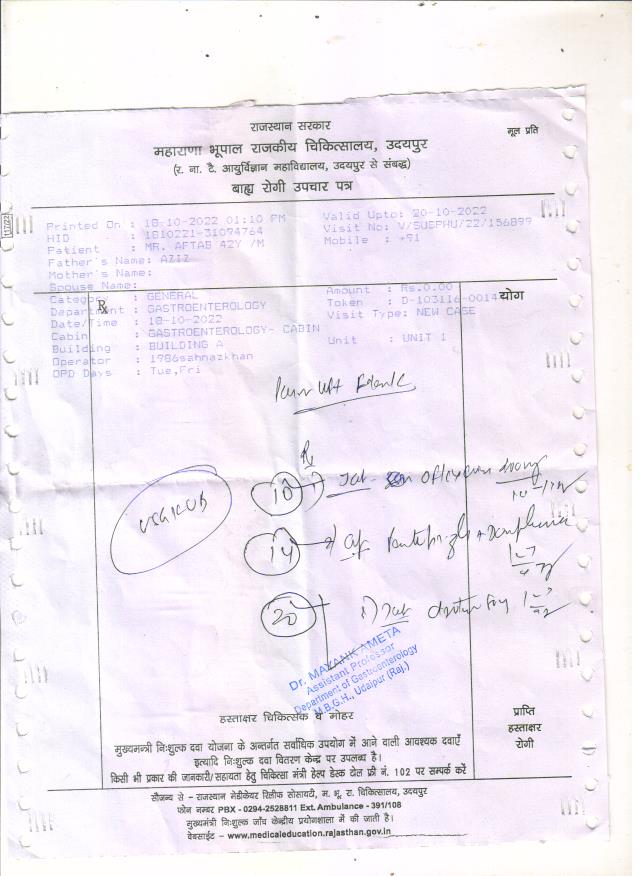 राजस्थान सरकार
मूल प्रति
महाराणा भूपाल राजकीय चिकित्सालय, उदयपुर
(र. ना. टै. आयुर्विज्ञान महाविद्यालय, उदयपुर से संबद्ध)
बाह्य रोगी उपचार पत्र
Printed On : 18-10-2022 01:10 PM
Valid Upto: 20-10-2022
HID : 1810221-31094764
Visit No: V/SUEPHU/22/156899
Patient : MR. AFTAB 42Y /M
Mobile : +91
Father's Name: AZIZ
Mother's Name:
Spouse Name:
Category : GENERAL
Amount : Rs.0.00
योग
Department : GASTROENTEROLOGY
Token : D-103116-0014
Date/Time : 18-10-2022
Visit Type: NEW CASE
Cabin : GASTROENTEROLOGY- CABIN
Building : BUILDING A
Unit : UNIT 1
Operator : 1986sahnazkhan
OPD Days : Tue,Fri
10 1) Tab
14
20 Tab
Dr. MAYANK AMETA
Assistant Professor
Department of Gastroenterology
M.B.G.H., Udaipur (Raj.)
हस्ताक्षर चिकित्सक व मोहर
प्राप्ति
हस्ताक्षर
रोगी
मुख्यमन्त्री निःशुल्क दवा योजना के अन्तर्गत सर्वाधिक उपयोग में आने वाली आवश्यक दवाएँ
इत्यादि निःशुल्क दवा वितरण केन्द्र पर उपलब्ध है।
किसी भी प्रकार की जानकारी/सहायता हेतु चिकित्सा मंत्री हेल्प डेस्क टोल फ्री नं. 102 पर सम्पर्क करें
सौजन्य से - राजस्थान मेडीकेयर रिलीफ सोसायटी, म. भू. रा. चिकित्सालय, उदयपुर
फोन नम्बर PBX - 0294-2528811 Ext. Ambulance - 391/108
मुख्यमंत्री निःशुल्क जाँच केन्द्रीय प्रयोगशाला में की जाती है।
वेबसाईट - www.medicaleducation.rajasthan.gov.in